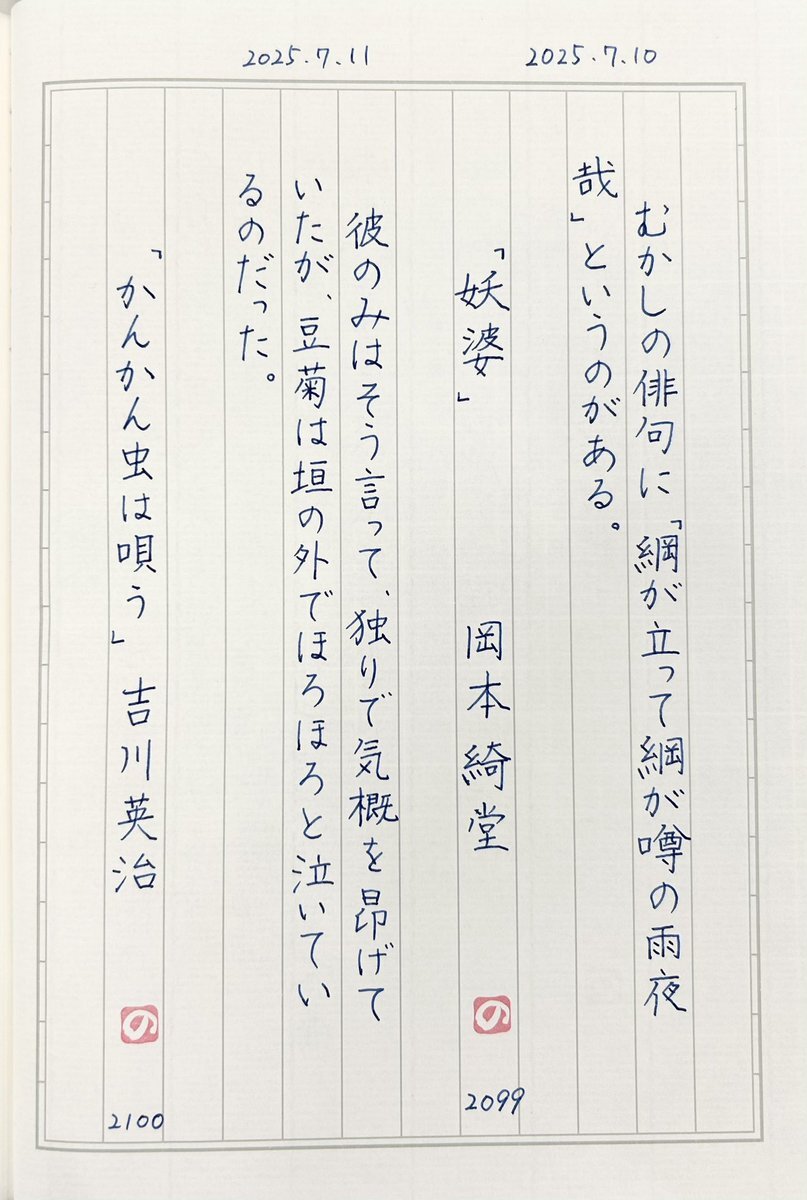 2025.7.10
むかしの俳句に「綱が立って綱が噂の雨夜
哉」というのがある。
「妖婆」 岡本綺堂
の
2099
2025.7.11
彼のみはそう言って、独りで気概を昂げて
いたが、豆菊は垣の外でほろほろと泣いてい
るのだった。
「かんかん虫は唄う」 吉川英治
の
2100